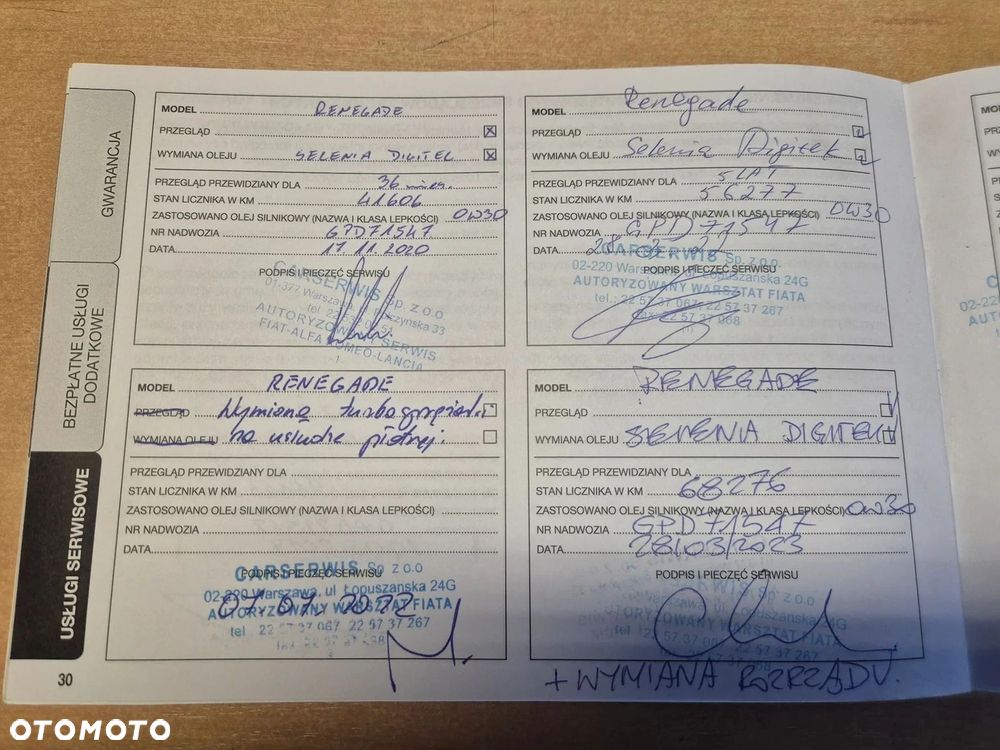 GWARANCJA
BEZPŁATNE USŁUGI
DODATKOWE
USŁUGI SERWISOWE
MODEL RENEGADE
PRZEGLĄD
WYMIANA OLEJU SELENIA DIGITEL
PRZEGLĄD PRZEWIDZIANY DLA 36 mies.
STAN LICZNIKA W KM 41606
ZASTOSOWANO OLEJ SILNIKOWY (NAZWA I KLASA LEPKOŚCI) 0W30
NR NADWOZIA GPD71547
DATA 17.11.2020
PODPIS I PIECZĘĆ SERWISU
CARSERWIS Sp. z o.o
01-377 Warszawa, Połczyńska 33
AUTORYZOWANY SERWIS
FIAT-ALFA ROMEO-LANCIA
MODEL Renegade
PRZEGLĄD
WYMIANA OLEJU Selenia Digitek
PRZEGLĄD PRZEWIDZIANY DLA 5 LAT
STAN LICZNIKA W KM 56277
ZASTOSOWANO OLEJ SILNIKOWY (NAZWA I KLASA LEPKOŚCI) 0W30
NR NADWOZIA GPD71547
DATA
CARSERWIS Sp. z o.o.
02-220 Warszawa, ul. Łopuszańska 24G
PODPIS I PIECZĘĆ SERWISU
AUTORYZOWANY WARSZTAT FIATA
tel.: 22 57 37 067, 22 57 37 267
fax: 22 57 37 068
MODEL RENEGADE
PRZEGLĄD Wymiana turbosprężar.
WYMIANA OLEJU na usłudze płatnej.
PRZEGLĄD PRZEWIDZIANY DLA
STAN LICZNIKA W KM
ZASTOSOWANO OLEJ SILNIKOWY (NAZWA I KLASA LEPKOŚCI)
NR NADWOZIA
DATA
CARSERWIS Sp. z o.o
PODPIS I PIECZĘĆ SERWISU
02-220 Warszawa, ul. Łopuszańska 24G
AUTORYZOWANY WARSZTAT FIATA
tel. 22 57 37 067 22 57 37 267
MODEL RENEGADE
PRZEGLĄD
WYMIANA OLEJU SELENIA DIGITEK
PRZEGLĄD PRZEWIDZIANY DLA
STAN LICZNIKA W KM 68276
ZASTOSOWANO OLEJ SILNIKOWY (NAZWA I KLASA LEPKOŚCI) 0W30
NR NADWOZIA GPD71547
DATA 28/03/2023
PODPIS I PIECZĘĆ SERWISU
AUTORYZOWANY WARSZTAT FIATA
+ WYMIANA ROZRZĄDU.
30
OTOMOTO